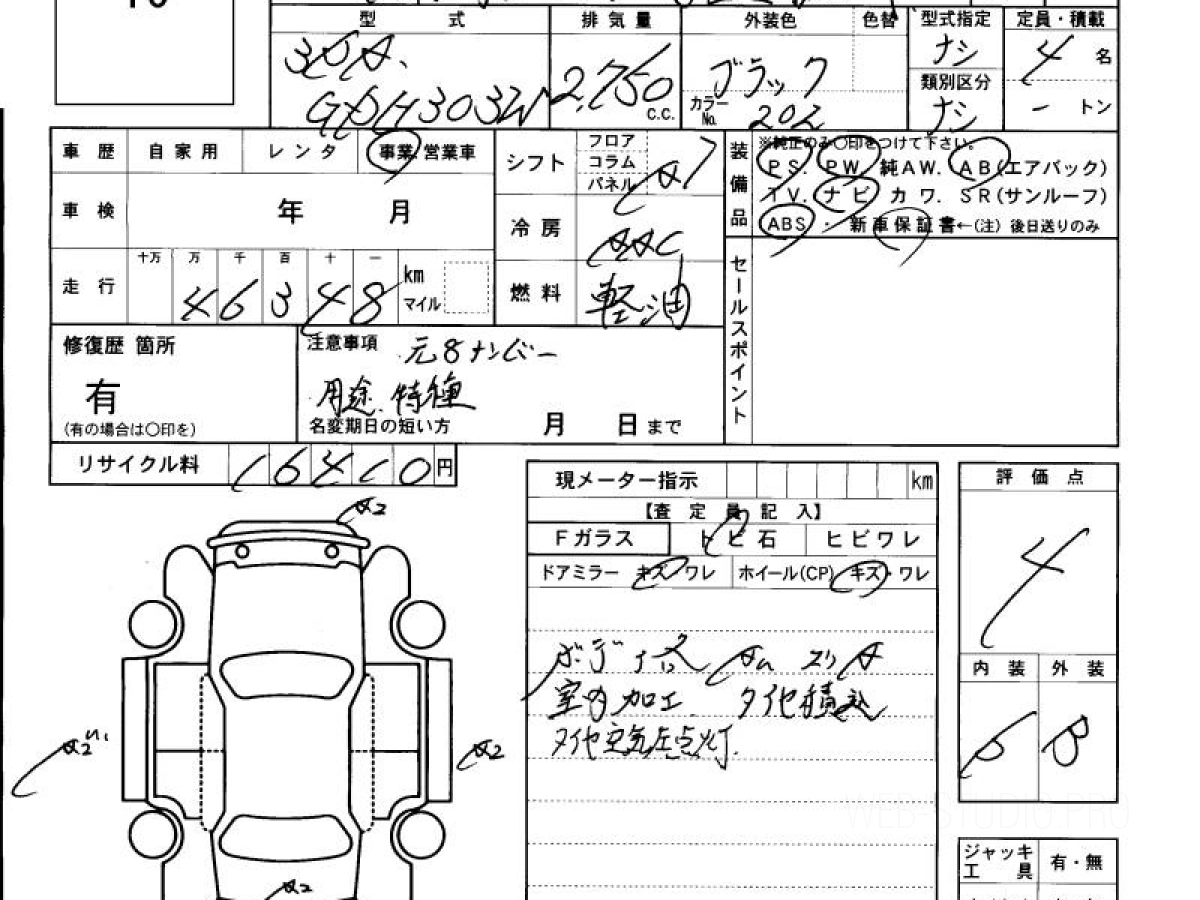 型 式
3DA.
GDH303W
排気量
2,750
c.c.
外装色
色替
ブラック
カラーNo. 202
型式指定
ナシ
類別区分
ナシ
定員・積載
4 名
- トン
車歴
自家用
レンタ
事業.営業車
車検
年 月
走行
十万 万 千 百 十 一
4 6 3 4 8
km
マイル
シフト
フロア
コラム
パネル
A7
冷房
AAC
燃料
軽油
装備品
※純正のみ〇印をつけて下さい。
PS. PW. 純AW. AB(エアバック)
TV. ナビ カワ. SR(サンルーフ)
ABS . 新車保証書←(注) 後日送りのみ
セールスポイント
修復歴 箇所
有
(有の場合は〇印を)
注意事項 元8ナンバー
用途.特種
名変期日の短い方 月 日まで
リサイクル料
16410円
A2
現メーター指示
km
【査定員記入】
Fガラス
トビ石
ヒビワレ
ドアミラー キズ・ワレ
ホイール(CP) キズ・ワレ
室内加工. タイヤ積込
タイヤ空気圧点灯.
評価点
4
内装
外装
B
B
A2
A2
A2
WEB-STUDIO.PRO
ジャッキ
工具
有・無